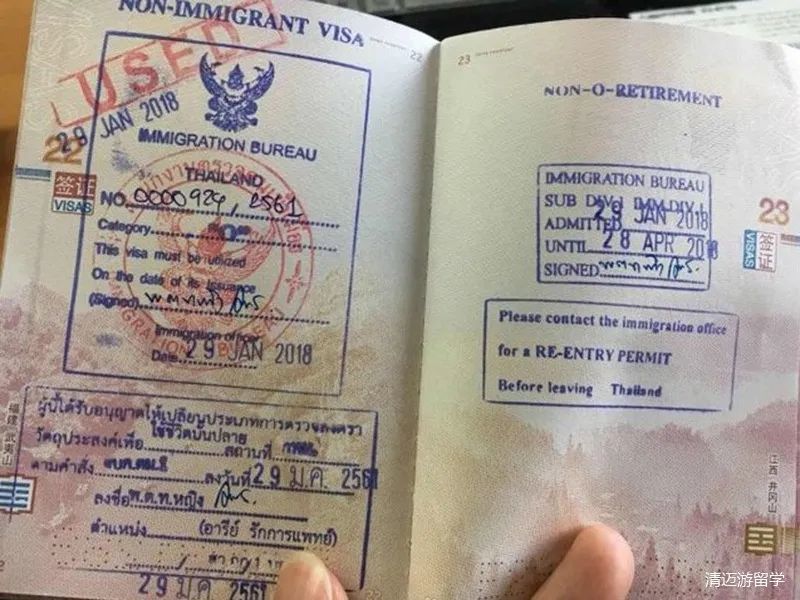 NON-IMMIGRANT VISA
22
USED
29 JAN 2018
IMMIGRATION BUREAU
THAILAND
22
签证
VISAS
NO. 0000924, 2561
Category "O"
This visa must be utilized
On the date of its issuance
(Signed)
Immigration officer
Date 29 JAN 2018
ผู้นี้ได้รับอนุญาตให้เปลี่ยนประเภทการตรวจลงตรา
วัตถุประสงค์เพื่อ ใช้ชีวิตบั้นปลาย สถานที่
ตามคำสั่ง ลงวันที่ 29 ม.ค. 2561
ลงชื่อ พ.ต.ท.หญิง
ตำแหน่ง (อารีย์ รักการแพทย์)
29 ม.ค. 2561
福建 武夷山
23
NON-O-RETIREMENT
IMMIGRATION BUREAU
SUB DIV.1 IMM.DIV.1
ADMITTED 29 JAN 2018
UNTIL 28 APR 2018
SIGNED
23
签证
VISAS
Please contact the immigration office
for a RE-ENTRY PERMIT
Before leaving Thailand
江西 井冈山
清迈游留学